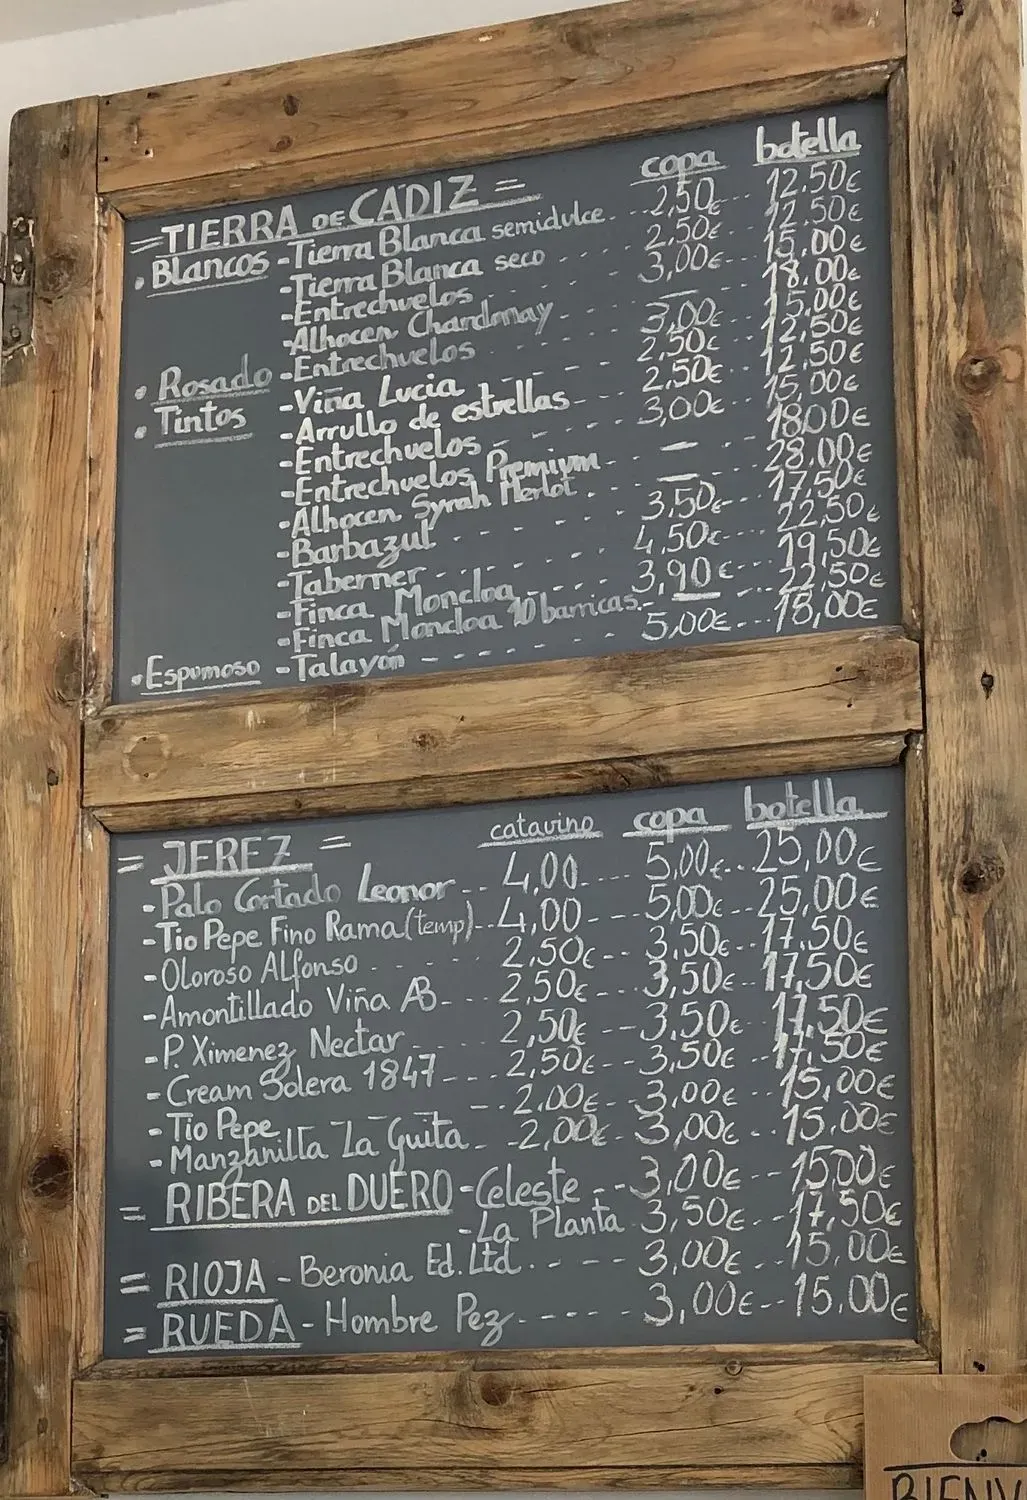 copa botella
= TIERRA DE CÁDIZ =
• Blancos - Tierra Blanca semidulce - - 2,50€ - - 12.50€
- Tierra Blanca seco - - - - 2,50€ - - 12.50€
- Entrechuelos - - - - 3,00€ - - 15,00€
- Alhocen Chardonay - - - — - - 18.00€
• Rosado - Entrechuelos - - - - 3,00€ - - 15,00€
• Tintos - Viña Lucia - - - - 2,50€ - - 12,50€
- Arrullo de estrellas - - - 2,50€ - - 12,50€
- Entrechuelos - - - - 3,00€ - - 15,00€
- Entrechuelos Premium - - - — - - 18,00€
- Alhocen Syrah Merlot - - - — - - 28,00€
- Barbazul - - - - 3,50€ - - 17,50€
- Taberner - - - - 4,50€ - - 22,50€
- Finca Moncloa - - - - 3,90€ - - 19,50€
- Finca Moncloa 10 barricas - - — - - 22,50€
• Espumoso - Talayón - - - - 5,00€ - - 18,00€
catavino copa botella
= JEREZ =
- Palo Cortado Leonor - - 4,00 - - 5,00€ - - 25,00€
- Tio Pepe Fino Rama (temp) - - 4,00 - - - 5,00€ - - 25,00€
- Oloroso Alfonso - - - - 2,50€ - - 3,50€ - - 17,50€
- Amontillado Viña AB - - - 2,50€ - - 3,50€ - - 17,50€
- P. Ximenez Nectar - - - - 2,50€ - - 3,50€ - - 17,50€
- Cream Solera 1847 - - - 2,50€ - - 3,50€ - - 17,50€
- Tio Pepe - - - - 2,00€ - - 3,00€ - - 15,00€
- Manzanilla La Guita - - 2,00€ - - 3,00€ - - 15,00€
= RIBERA DEL DUERO - Celeste - - 3,00€ - - 15,00€
- La Planta 3,50€ - - 17,50€
= RIOJA - Beronia Ed. Ltd. - - - 3,00€ - - 15,00€
= RUEDA - Hombre Pez - - - - 3,00€ - - 15,00€
BIENV